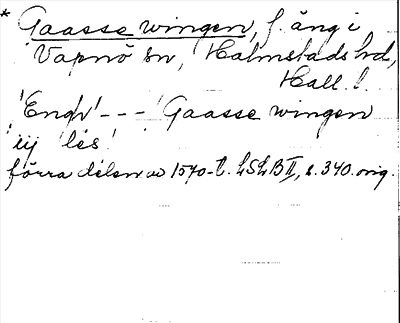 * Gaasse wingen, f. äng i
Vapnö sn, Halmstads hd,
Hall. l.
'Engh' --- 'Gaasse wingen
iij les'
förra delen av 1570-t. LSLB II, s. 340. orig.